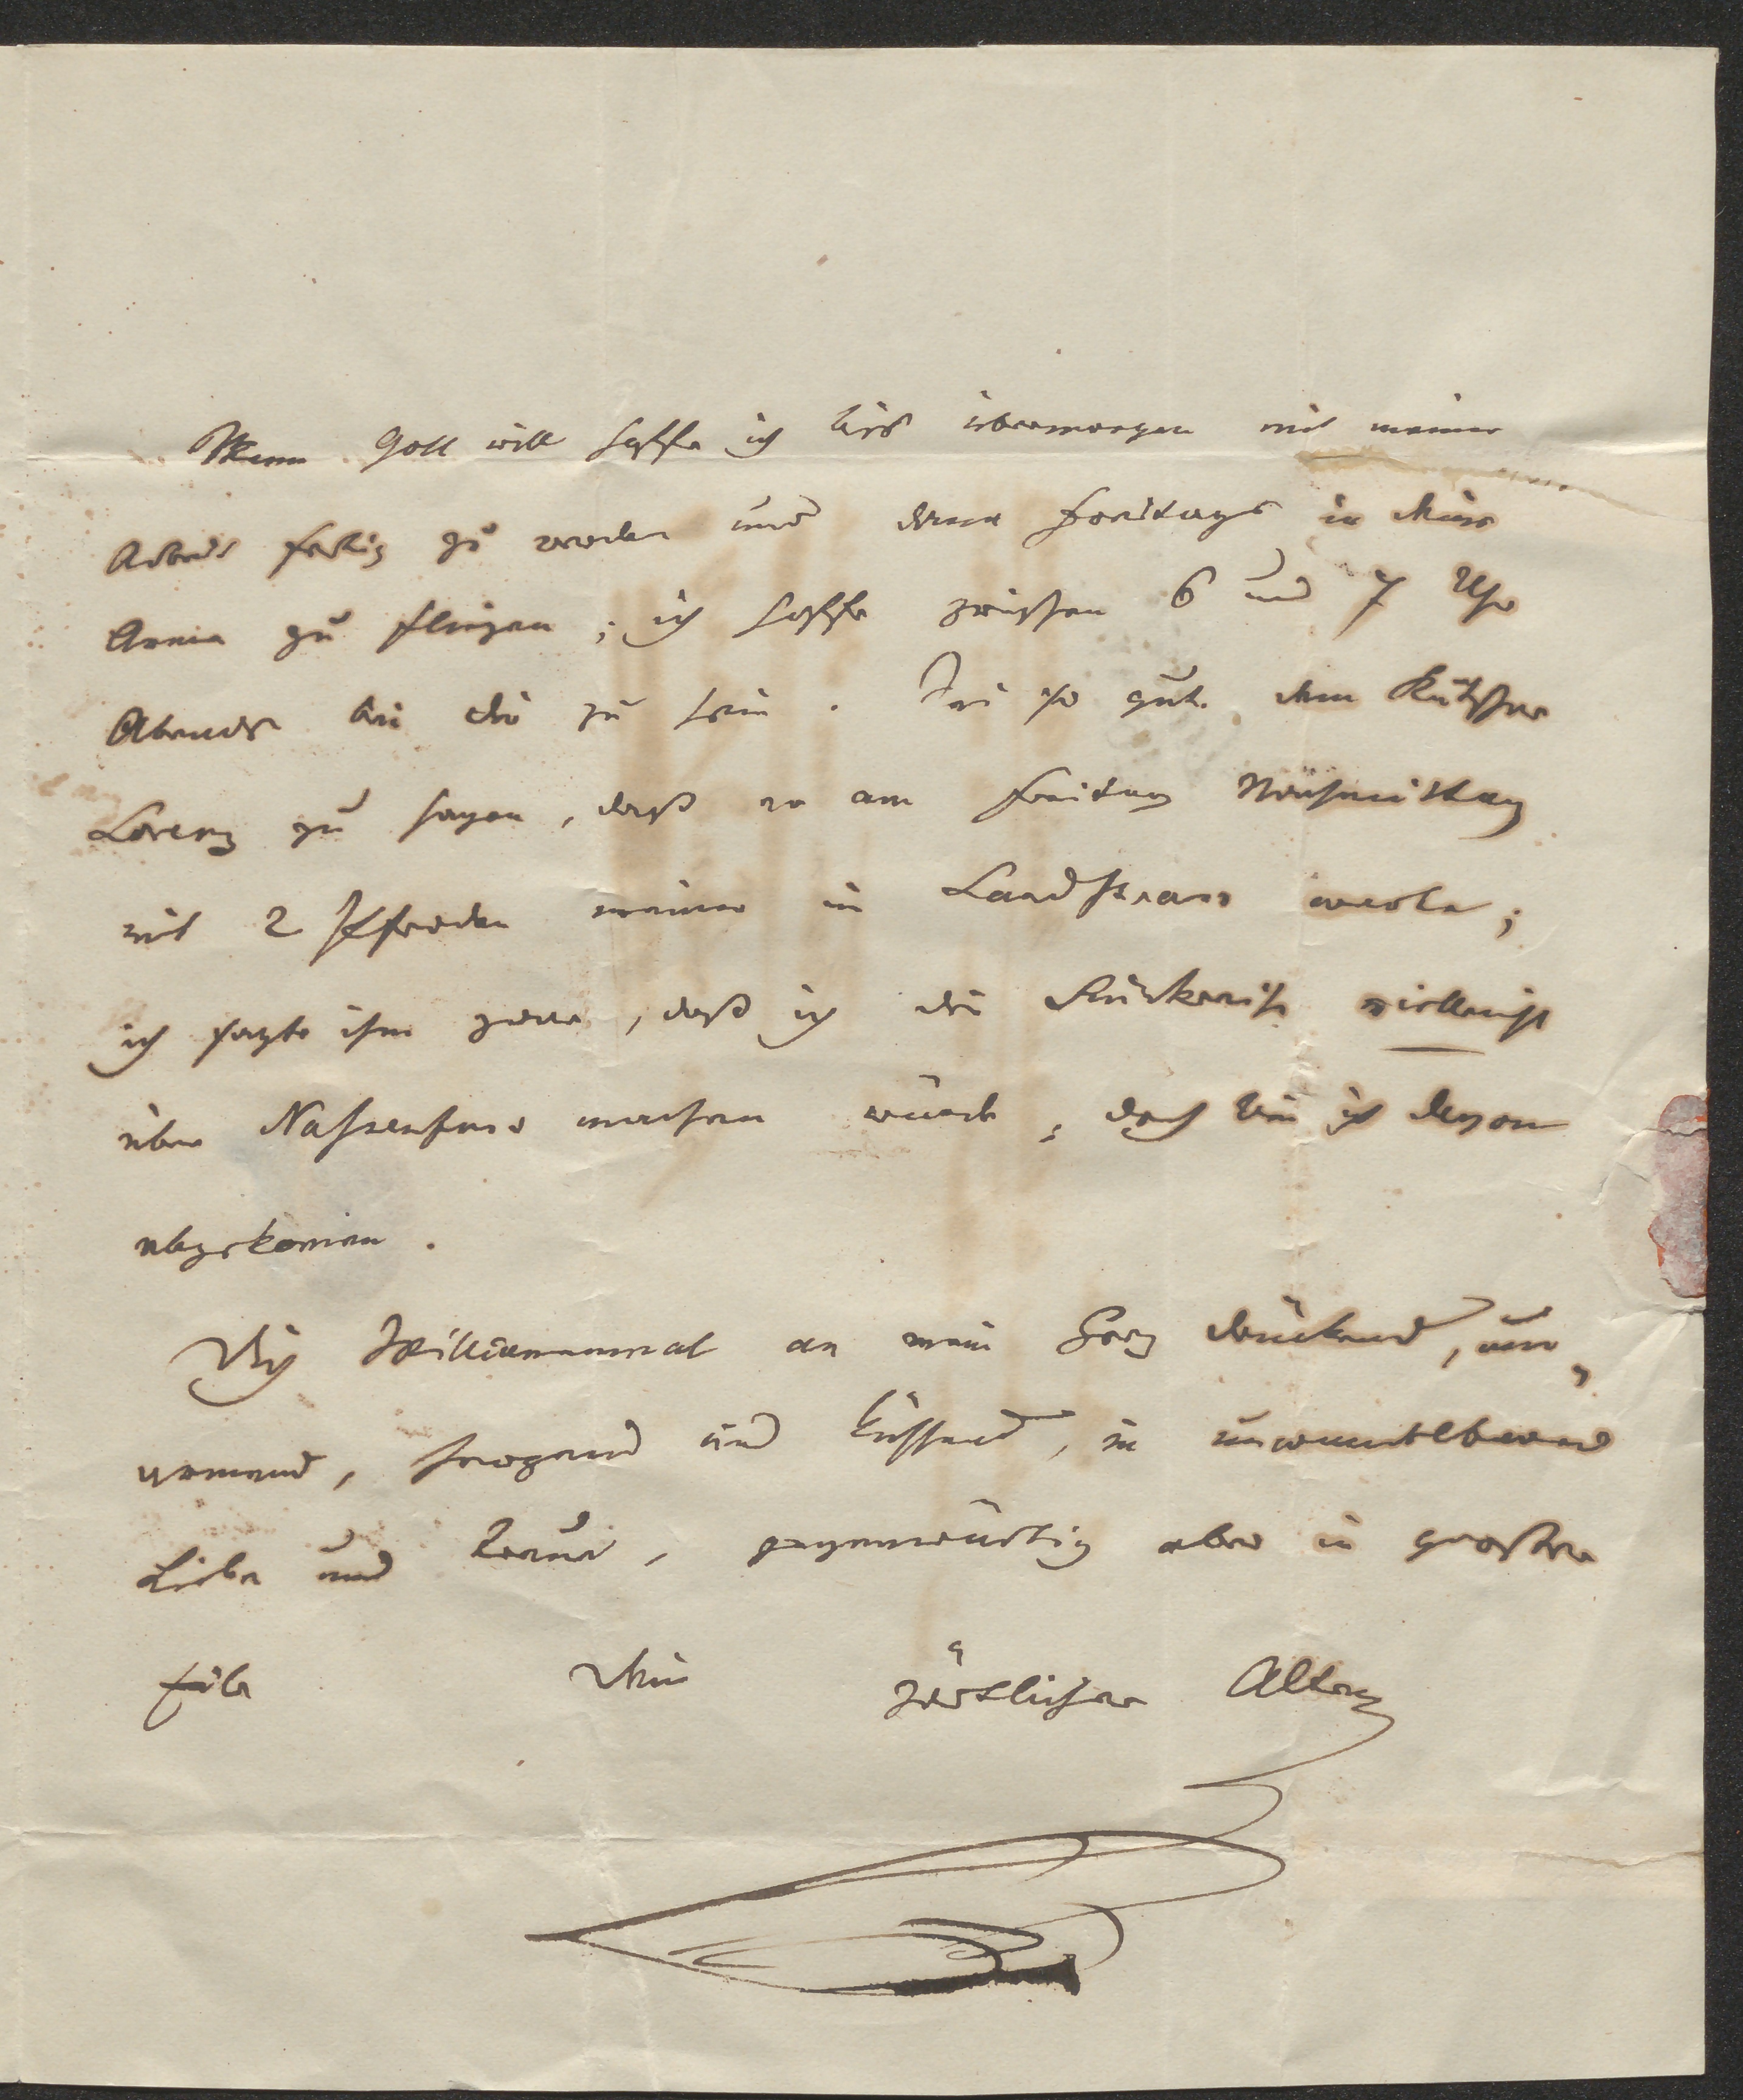 Wenn Gott will hoffe ich bis übermorgen mit meiner
Arbeit fertig zu werden und dann Freitags in deine
Arme zu fliegen; ich hoffe zwischen 6 und 7 Uhr
Abends bei dir zu sein. Sei so gut dem Kutscher
Lorenz zu sagen, daß er am Freitag Nachmittag
mit 2 Pferden meiner in Landstrass warte;
ich sagte ihm zwar, daß ich die Rückreise vielleicht
über Nassenfuss machen würde; doch bin ich davon
abgekomen.
Dich Trillionenmal an mein Herz drückend, um,
armend, herzend und küssend, in unwandelbarer
Liebe und Treue, gegenwärtig aber in grosser
Eile Dein zärtlicher Alter